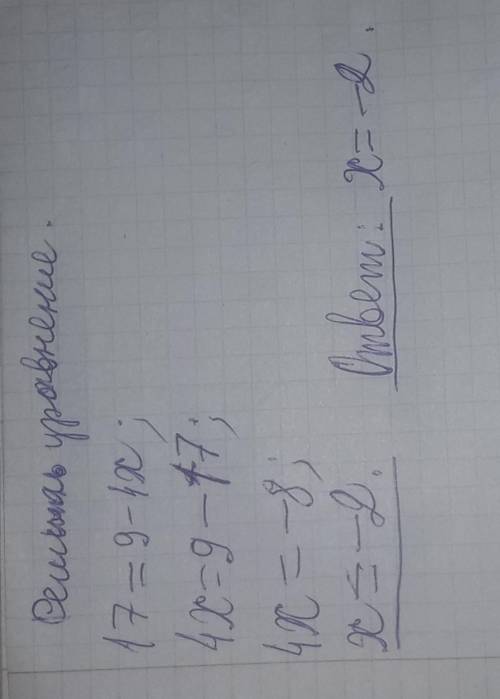 Решить уравнение.
17 = 9 - 4x;
4x = 9 - 17;
4x = -8;
x = -2.
Ответ: x = -2.